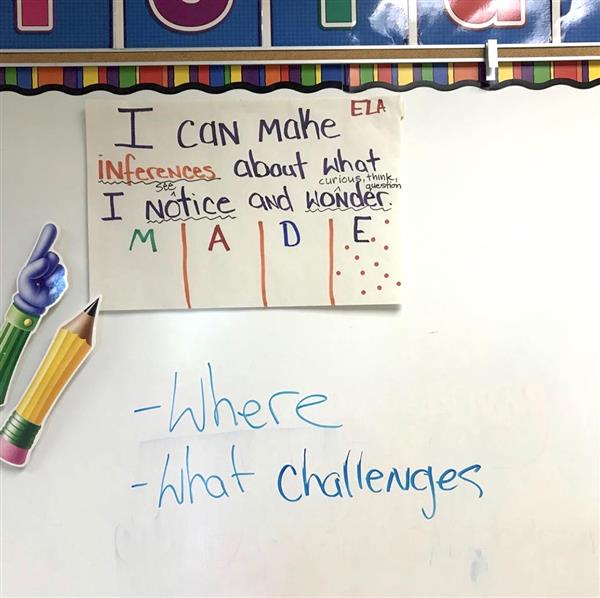 ELA
I CAN make
INferences about what
see curious, think, question
I Notice and wonder.
M A D E
-Where
-What challenges